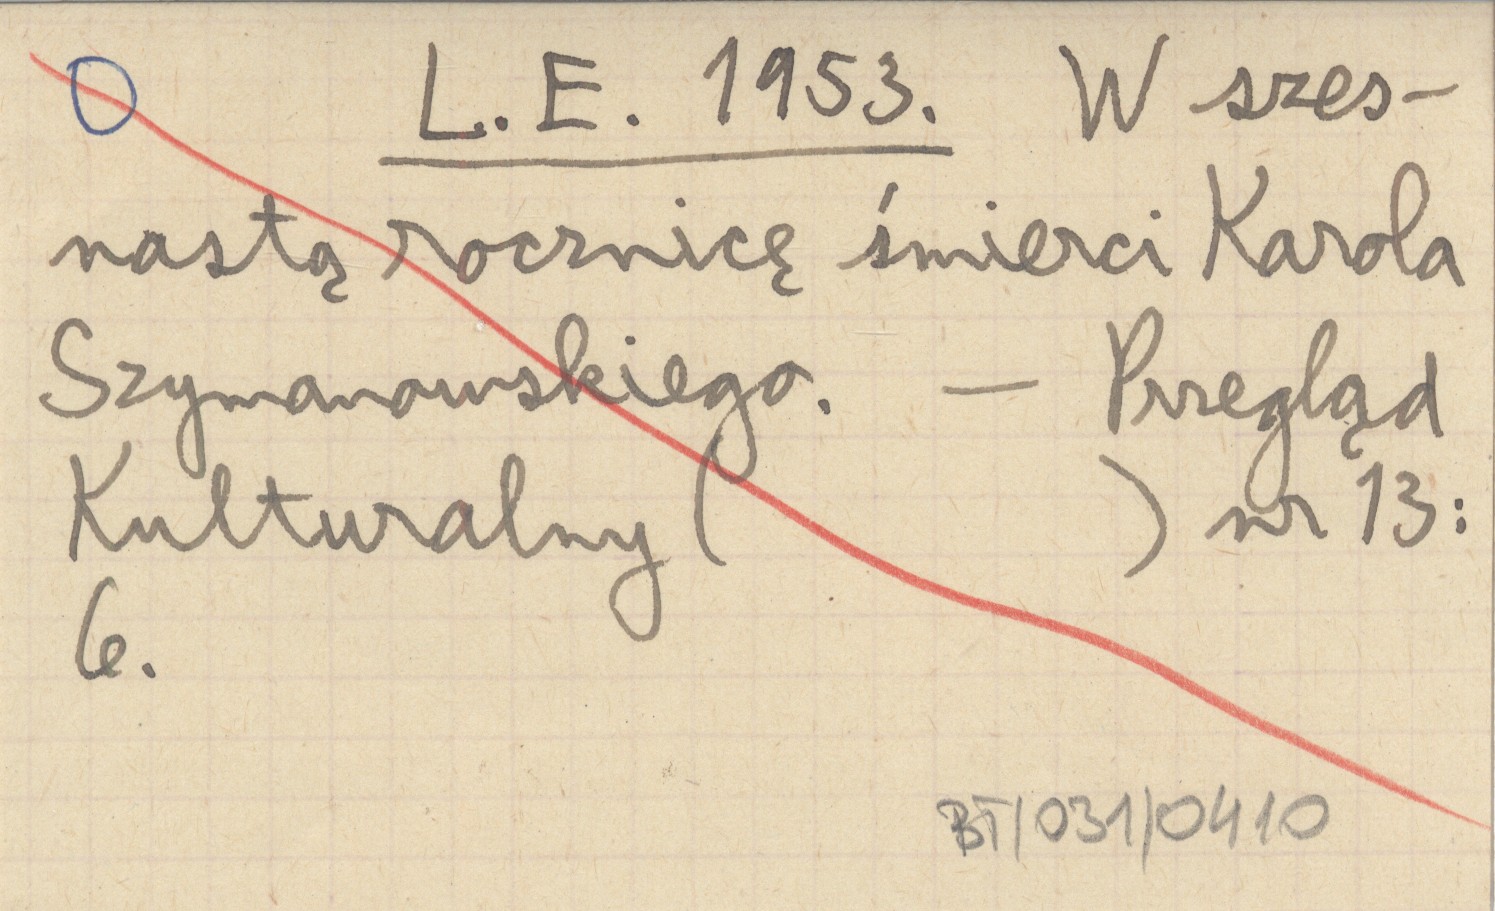 L. E. 1953. W szes-
nastą rocznicę śmierci Karola
Szymanowskiego. — Przegląd
Kulturalny ( ) nr 13:
6.
BT/031/0410